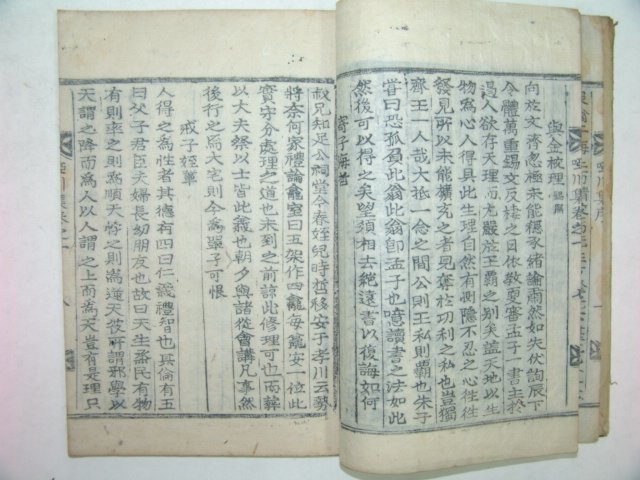 與金校理
向於文齋忽極未能穩承緒論爾然如失伏詢辰下
令體萬重錫文反棲之日依敎更審孟子一書主於
遏人欲存天理而尤嚴於王覇之別矣盖天地以生
物爲心人得具此生理自然有惻隱不忍之心性往
發見所以未能擴充之者見奪於功利之私也豈獨
齊王一人哉大抵一念之間公則王私則覇也朱子
嘗曰恐孤負此翁此翁卽孟子也噫讀書之法如此
然後可以得之矣望須相去絶遠書以復誨如何
寄子
叔兄知足公祠堂今春姪兒時移安于孝川云勢
將奈何家禮論龕室曰五架作四龕每龕安一位此
實守分處理之道也未到之前諒此修理可也而葬
以大夫祭以士皆此義也朝夕與諸從會講凡事然
後行之爲大宅則令爲單子可恨
戒子姪輩
人得之爲性者其德有四曰仁義禮智也其倫有五
曰父子君臣夫婦長幼朋友也故曰天生烝民有物
有則率之則爲順天悖之則爲逆天彼所謂邪學以
天謂之降而爲人以人謂之上而爲天豈有是理只